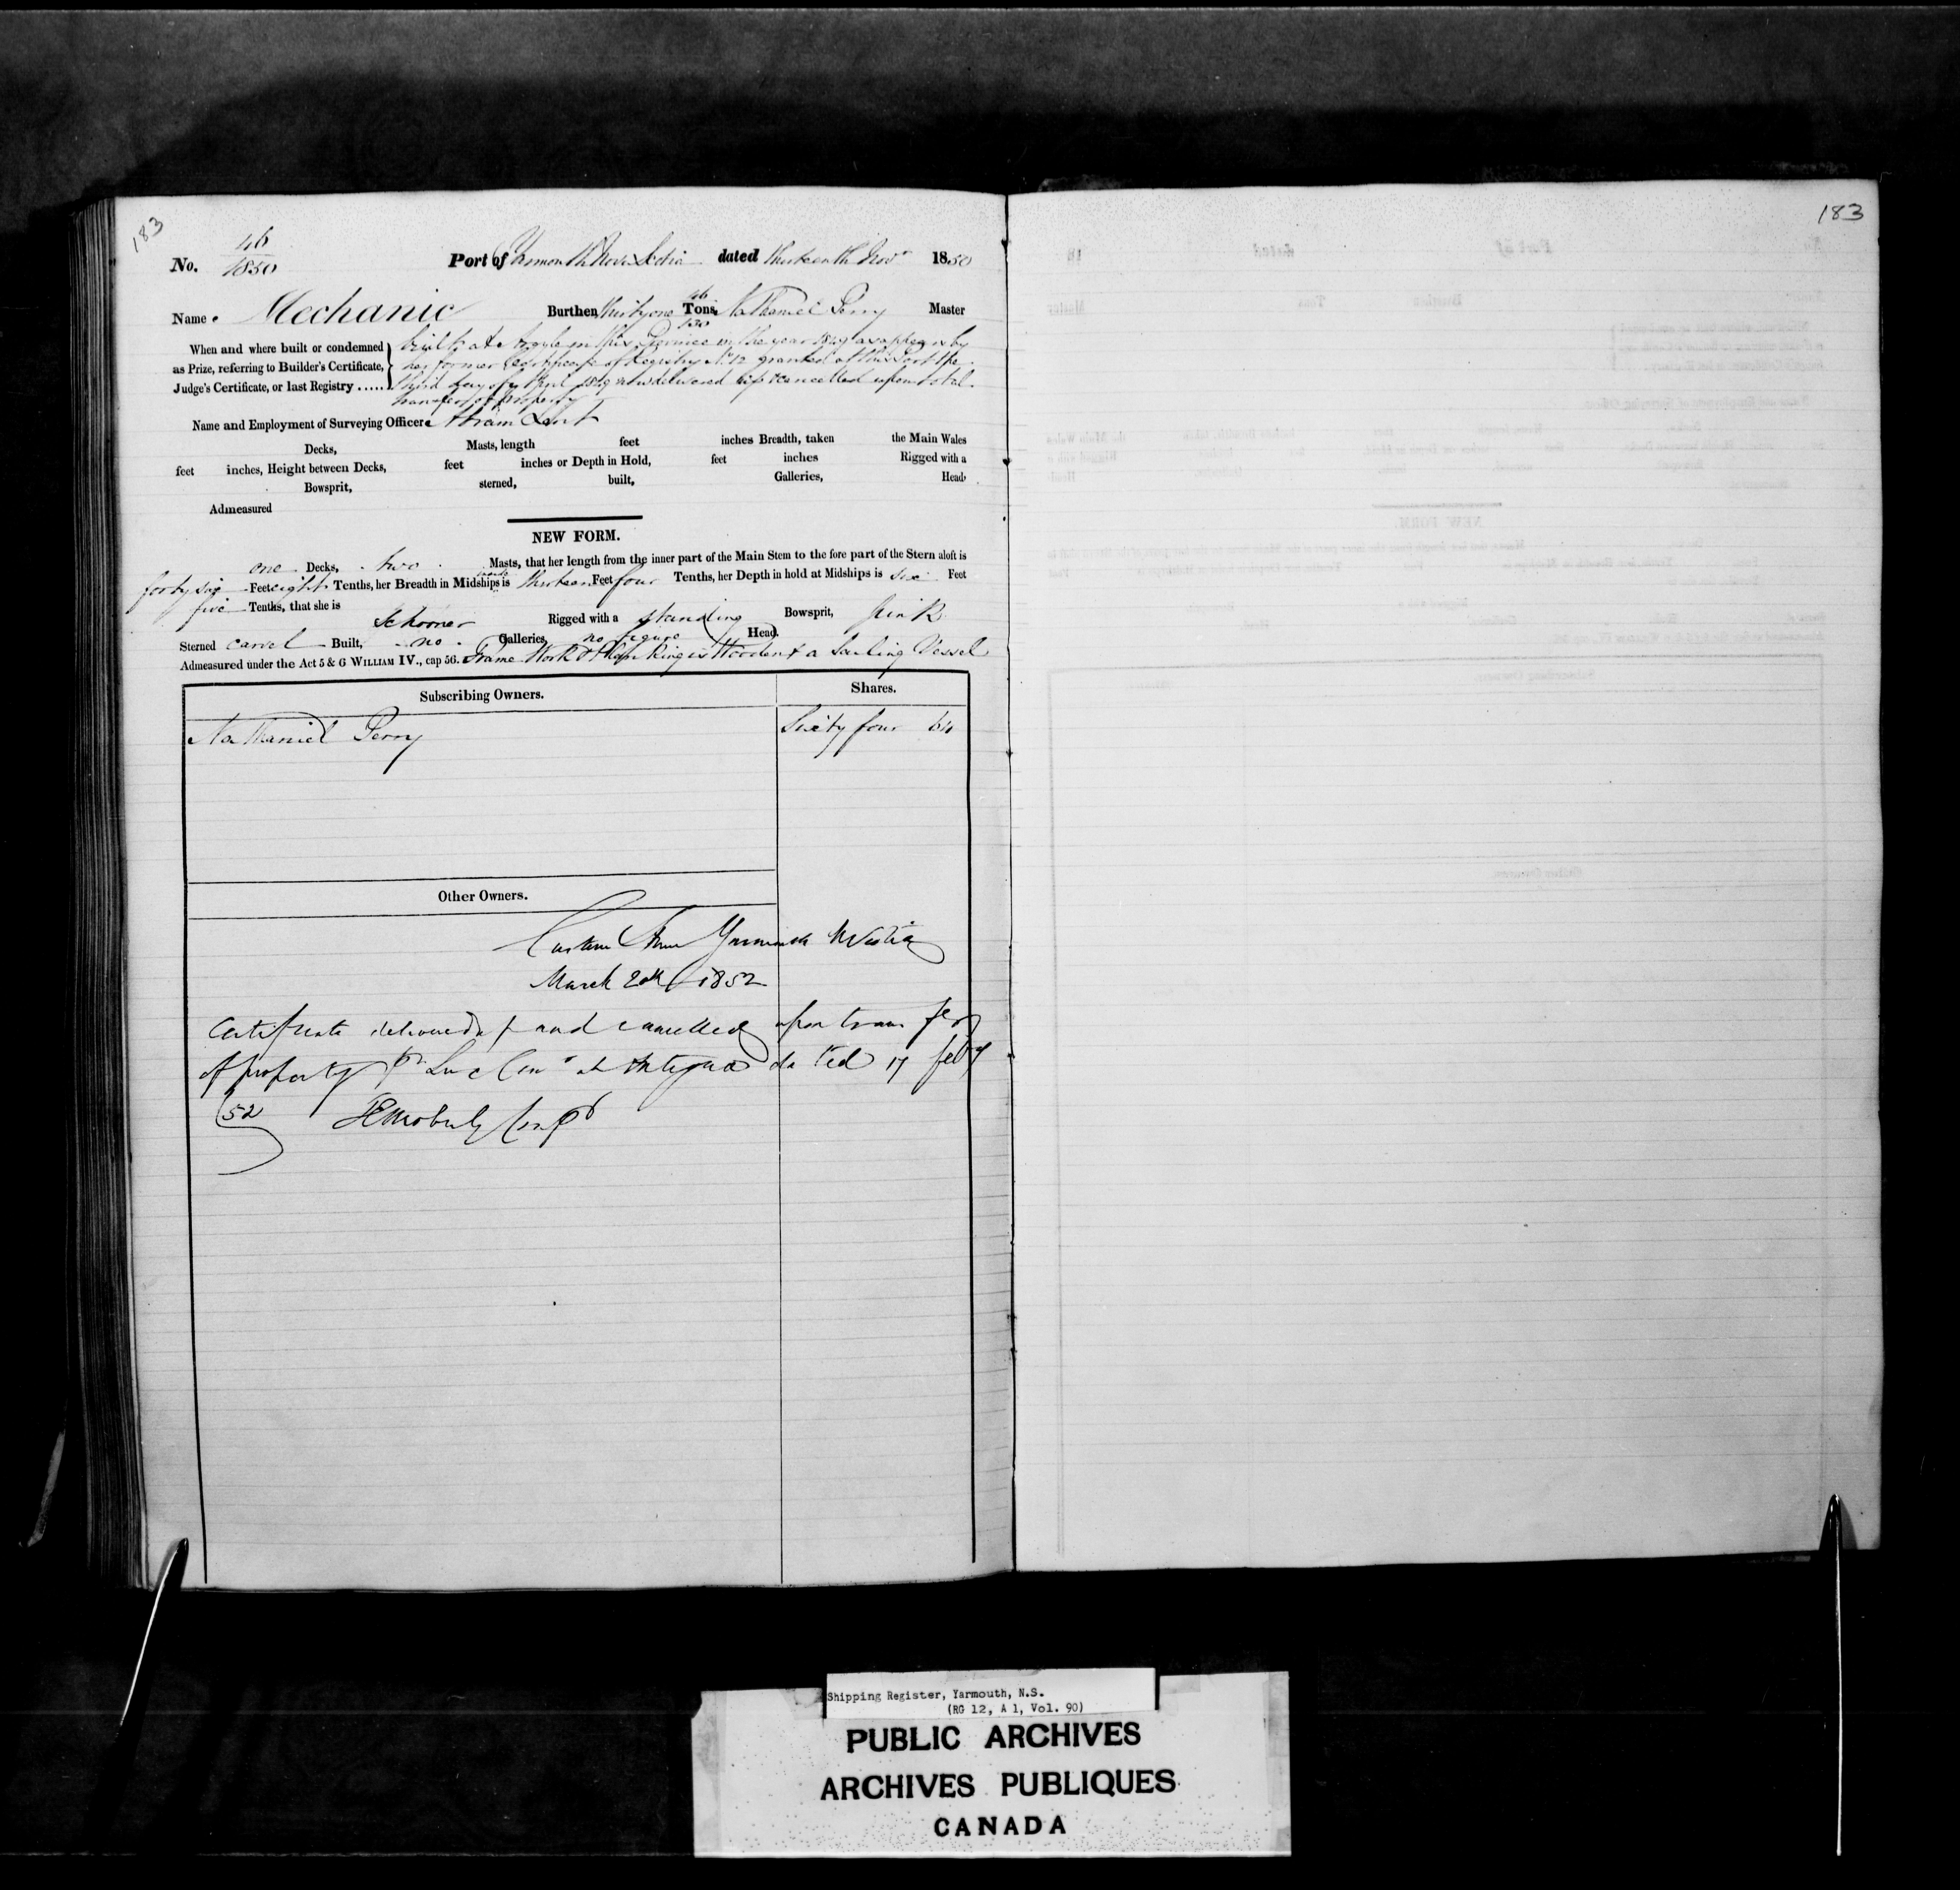 183
183
46
No. 1850 Port of Yarmouth Nova Scotia dated thirteenth Novr 1850
46
Name Mechanic Burthen Thirty one Tons, Nathaniel Perry Master
130
When and where built or condemned built at Argyle in this Province in the year 1849 as appears by
as Prize, referring to Builder's Certificate, her former Certificate of Registry No. 12 granted at this Port the
Judge's Certificate, or last Registry ..... third day of April 1849 now delivered up & cancelled upon total
transfer of property
Name and Employment of Surveying Officer Abram Lent
Decks, Masts, length feet inches Breadth, taken the Main Wales
feet inches, Height between Decks, feet inches or Depth in Hold, feet inches Rigged with a
Bowsprit, sterned, built, Galleries, Head,
Admeasured
NEW FORM.
one Decks, two Masts, that her length from the inner part of the Main Stem to the fore part of the Stern aloft is
forty six Feet eight Tenths, her Breadth in Midships is thirteen Feet four Tenths, her Depth in hold at Midships is six Feet
five Tenths, that she is
Schooner Rigged with a standing Bowsprit, Pink
Sterned carvel Built, no Galleries, no figure Head.
Admeasured under the Act 5 & 6 WILLIAM IV., cap 56. Frame Work & Planking is Wooden & a Sailing Vessel
Subscribing Owners. Shares.
Nathaniel Perry Sixty four 64
Other Owners.
Custom House Yarmouth N Scotia
March 20th 1852
Certificate delivered up and cancelled upon transfer
of property pr at Antigua dated 17 feby
52
Shipping Register, Yarmouth, N.S.
(RG 12, A 1, Vol. 90)
PUBLIC ARCHIVES
ARCHIVES PUBLIQUES
CANADA